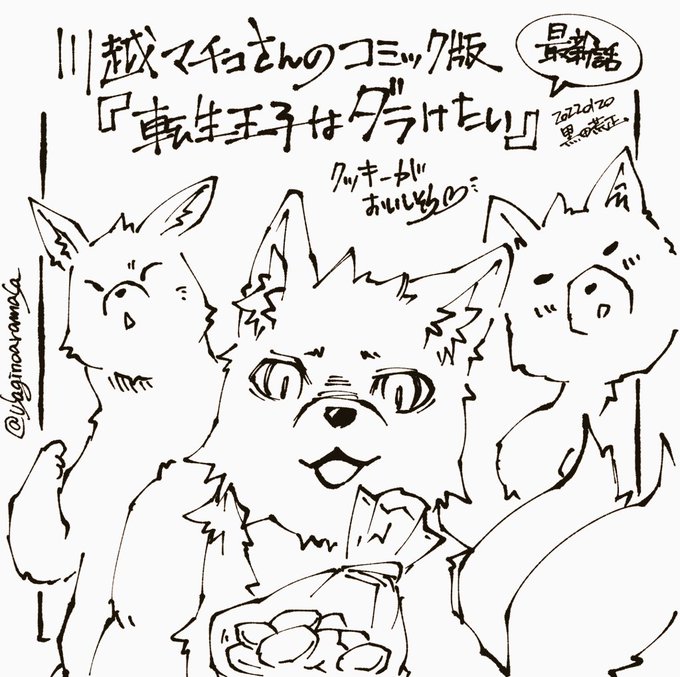 川越マチコさんのコミック版
『転生王子はダラけたい』
最新話
20220120
黒田荒正
クッキーが
おいしそう♡
@usaginoavamaca